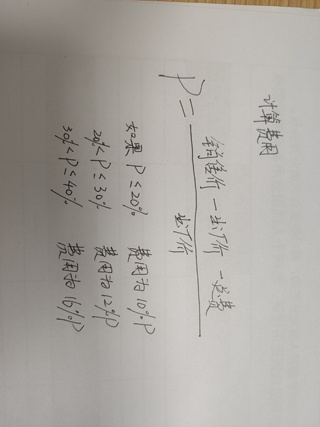 计算费用
P = 销售价 - 出厂价 -
出厂价
如果 P ≤ 20% 费用为 10%P
20% < P ≤ 30% 费用为 12%P
30% < P ≤ 40% 费用为 16%P